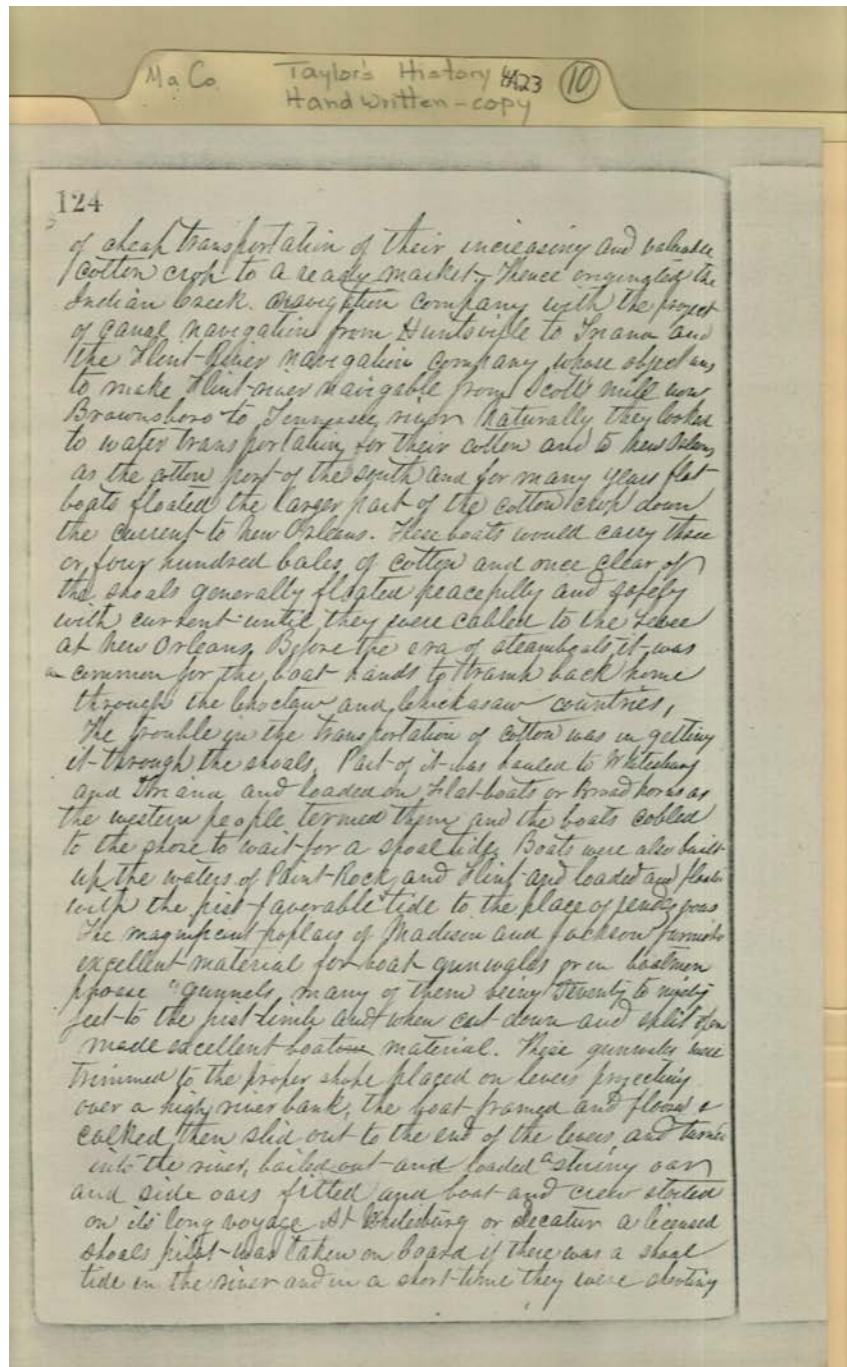 Ma Co. Taylor's History 4A23 10
Hand written - copy
124
of cheap transportation of their increasing and valuable
cotton crop to a ready market. Thence originated the
Indian Creek Navigation company with the project
of canal navigation from Huntsville to Triana and
the Flint-River navigation company whose object was
to make Flint-river navigable from Scotts mill now
Brownsboro to Tennessee river Naturally they looked
to water transportation for their cotton and to New Orleans
as the cotton port of the south and for many years flat
boats floated the larger part of the cotton crop down
the current to New Orleans. These boats would carry three
or four hundred bales of cotton and once clear of
the shoals generally floated peacefully and safely
with current until they were cabled to the Levee
at New Orleans, Before the era of steamboats it was
common for the boat hands to tramp back home
through the Choctaw and Chickasaw countries,
The trouble in the transportation of cotton was in getting
it through the shoals, Part of it was hauled to Whitesburg
and Triana and loaded on Flat-boats or Broad horns as
the western people termed them and the boats cabled
to the shore to wait for a shoal tide, Boats were also built
up the waters of Paint-Rock and Flint and loaded and floated
with the first favorable tide to the place of rendezvous
The magnificent poplars of Madison and Jackson furnish
excellent material for boat gunwales or in boatmen
phrase "gunnels, many of them being Seventy to ninety
feet to the first limb and when cut down and split open
made excellent boat material. These gunwales were
trimmed to the proper shape placed on levers projecting
over a high river bank, the boat framed and floored &
calked, then slid out to the end of the levers and turned
into the river, bailed out and loaded a steering oar
and side oars fitted and boat and crew started
on its long voyage At Whitesburg or Decatur a licensed
shoals pilot was taken on board if there was a shoal
tide in the river and in a short time they were shooting